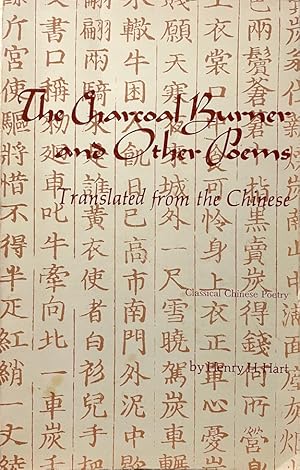 The Charcoal Burner
and Other Poems
Translated from the Chinese
Classical Chinese Poetry
by Henry H. Hart
兩鬢蒼指黑賣炭得錢何所營
口中可憐身上衣正單心憂炭
寒夜城外一尺雪曉駕炭車
轍牛困飢日已高市南門外泥
翩翩兩騎誰黃衣使者白衫兒手把
書口稱敕車叱牛牽向北一車炭
斤宮使驅將惜不得半疋紅綃一丈綾